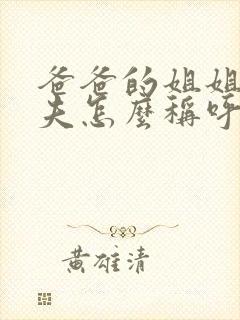 爸爸的姐姐
夫怎麼稱呼
黃雄清